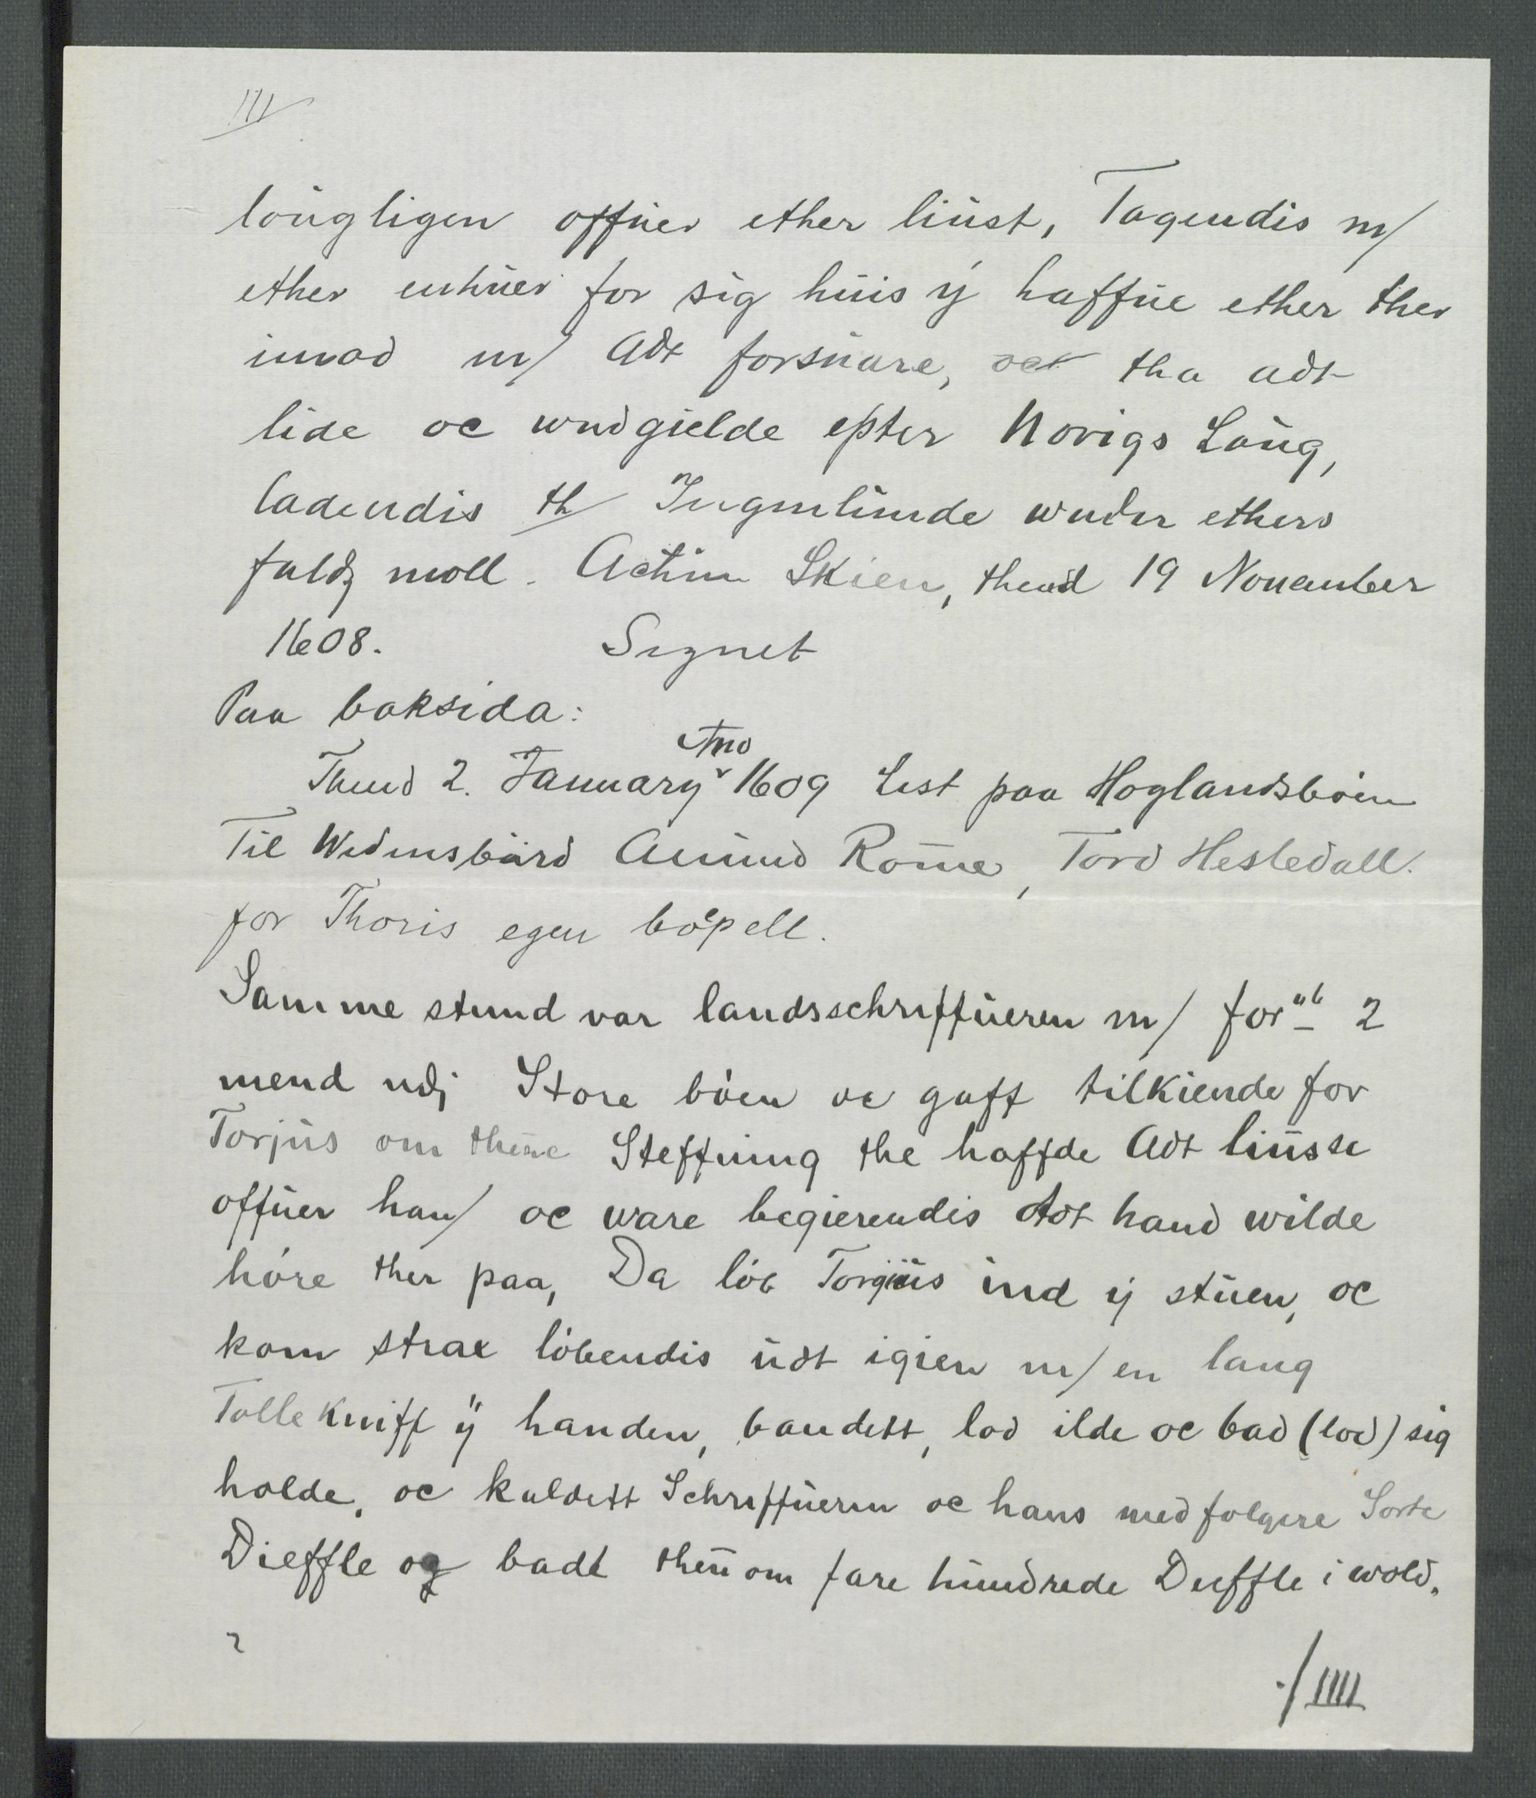 III
loügligen offüer ether liüst, Tagendis m/
ether enhüer for sig hüis ÿ haffüe ether ther
imod m/ Adt forsüare, oct tha adt
lide oc wndgielde epter Norigs Loüg,
ladendis th/ Ingenlünde wnder ethers
faldz moll. Actüm Skien, thend 19 Nouember
1608. Signet
Paa baksida:
Thend 2. January Ano 1609 Lest paa Hoglandsböen
Til Widinsbürd Amünd Roüe, Tord Hesledall.
for Thoris egen böepell.
Samme stund var landsschriffüeren m/ for"b 2
mend udj Store böen oc gaff tilkiende for
Torjüs om thene Steffning the haffde Adt liüsse
offüer han/ oc ware begierendis Adt hand wilde
höre ther paa, Da löb Torgiüs ind ÿ stüen, oc
kom strax löbendis üdt igien m/ en lang
Tollekniff ÿ handen, bandett, lod ilde oc bad (lod) sig
holde, oc kaldett Schriffüeren oc hans medfolgere Sorte
Dieffle og badt theüom fare hündrede Dieffle i wold.
2
./IIII